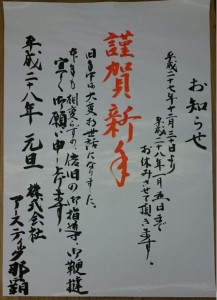 お知らせ
平成二十七年十二月三十日より
平成二十八年一月五日まで
お休みさせて頂きます。
謹賀新年
旧年中は大変お世話になりました。
本年も相変らずの、倍旧の御指導、御鞭撻
宜しく御願い申し上げます!
平成二十八年 元旦
株式会社
アースティック那覇